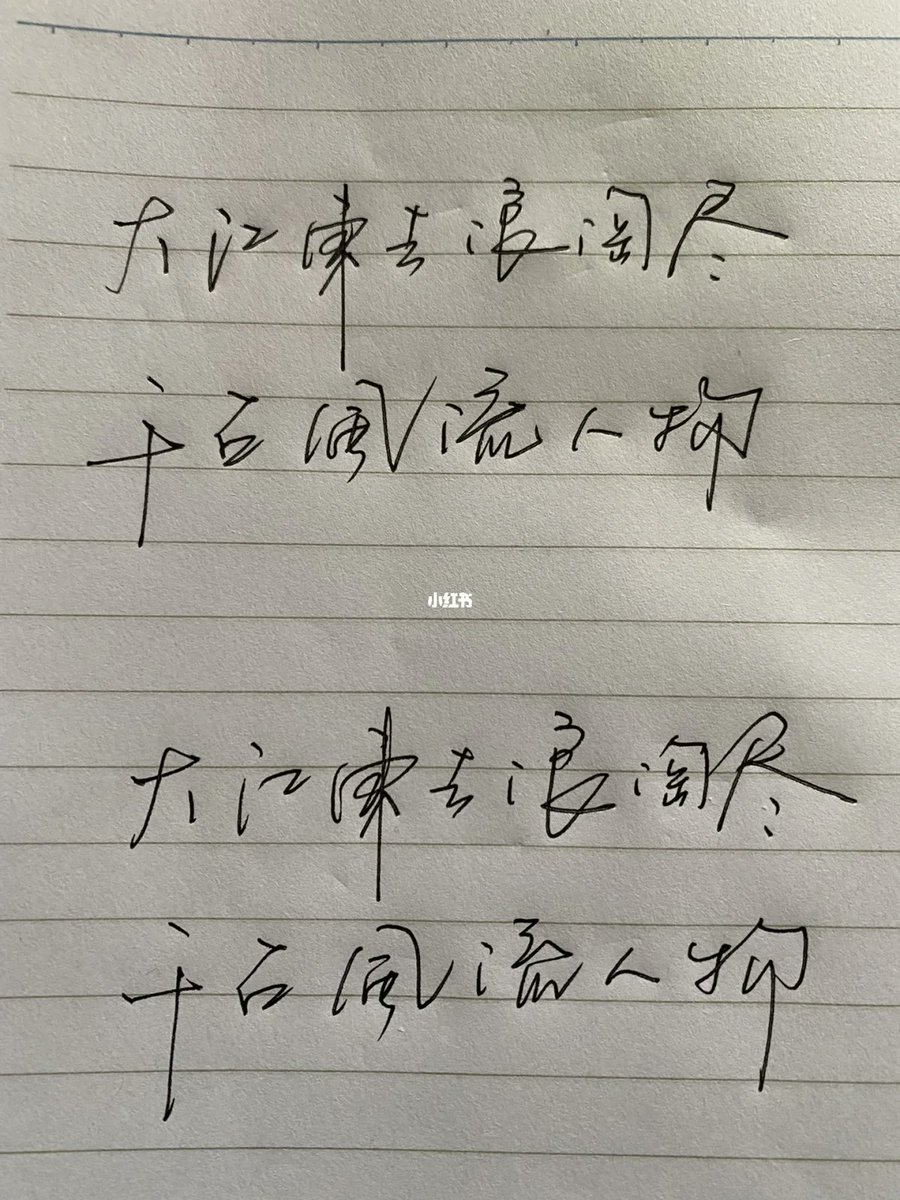 大江東去浪淘尽
千古風流人物
小红书
大江東去浪淘尽
千古風流人物